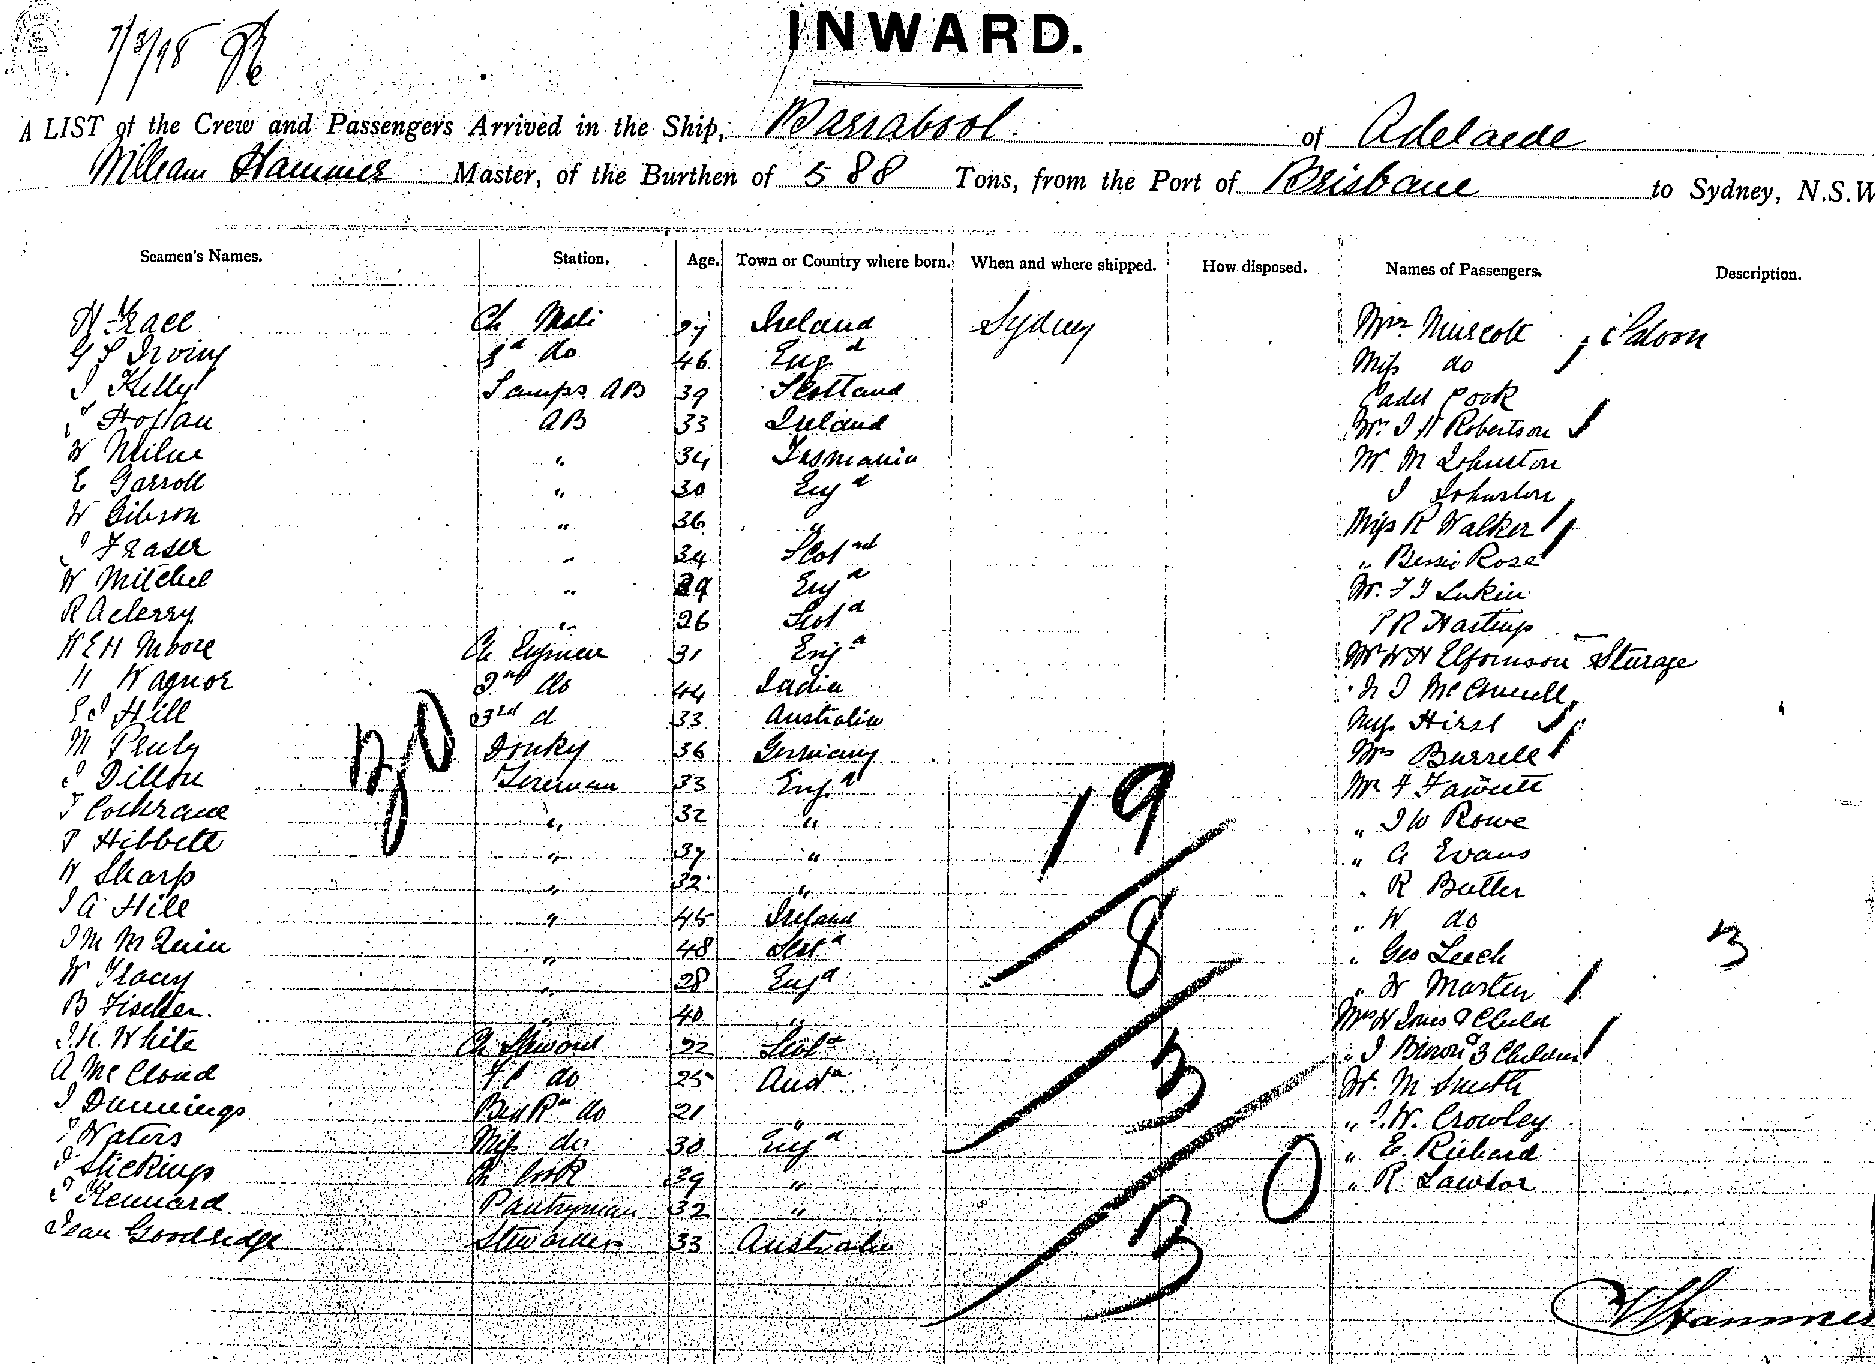 7/3/98
INWARD.
A LIST of the Crew and Passengers Arrived in the Ship, Barrabool of Adelaide
William Hammer Master, of the Burthen of 588 Tons, from the Port of Brisbane to Sydney, N.S.W
Seamen's Names. Station. Age. Town or Country where born. When and where shipped. How disposed. Names of Passengers. Description.
Grace Ch Mate 27 Ireland Sydney Mrs Muscott Saloon
G S Irving 2d do 46 Engd Miss do
J Kelly Lamps AB 39 Scotland Cadet Cook
Hogan AB 33 Ireland Mr J H Robertson
W Milne " 34 Tasmania Mr M Johnston
E Garroll " 30 Engd J Johnston
W Gibson " 36 " Miss R Walker
J Fraser " 34 Scotnd " Bessie Rose
W Mitchel " 29 Engd Mr F J Lukin
R Aclerry " 26 Scotd P R Hastings
W E H Moore Ch Engineer 31 Engd Mr W H Elfoinson Sturage
H Wagnor 2nd do 44 India J McConnell
Hill 3rd d 33 Australia Miss Hirst
M Pruly Donky 36 Germany Mrs Burrell
J Dillon Fireman 33 Engd Mr F Fawcett
T Cochrane " 32 " " J W Rowe
P Hibbett " 37 " " A Evans
W Sharp " 32 " " R Butler
J A Hill " 45 Ireland " W do
J M McQuin " 48 Scotd " Geo Leech
W Tracey " 28 Engd " W Marten
B Fischer " 40 " Mrs H Jones & Child
J. H. White Ch Steward 22 Scotd " J & 3 Children
A McCloud F C do 25 Austa Mr. M Smith
J Dunnings Bed Rm do 21 " " J. W. Crowley
J Waters Mess do 30 Engd " E. Richard
J Stickings Ch Cook 39 " " R. Lawlor
J Kennard Pantryman 32 "
Jean Goodridge Stewardess 33 Australia
19
8
3
3
0
3
W Hammer